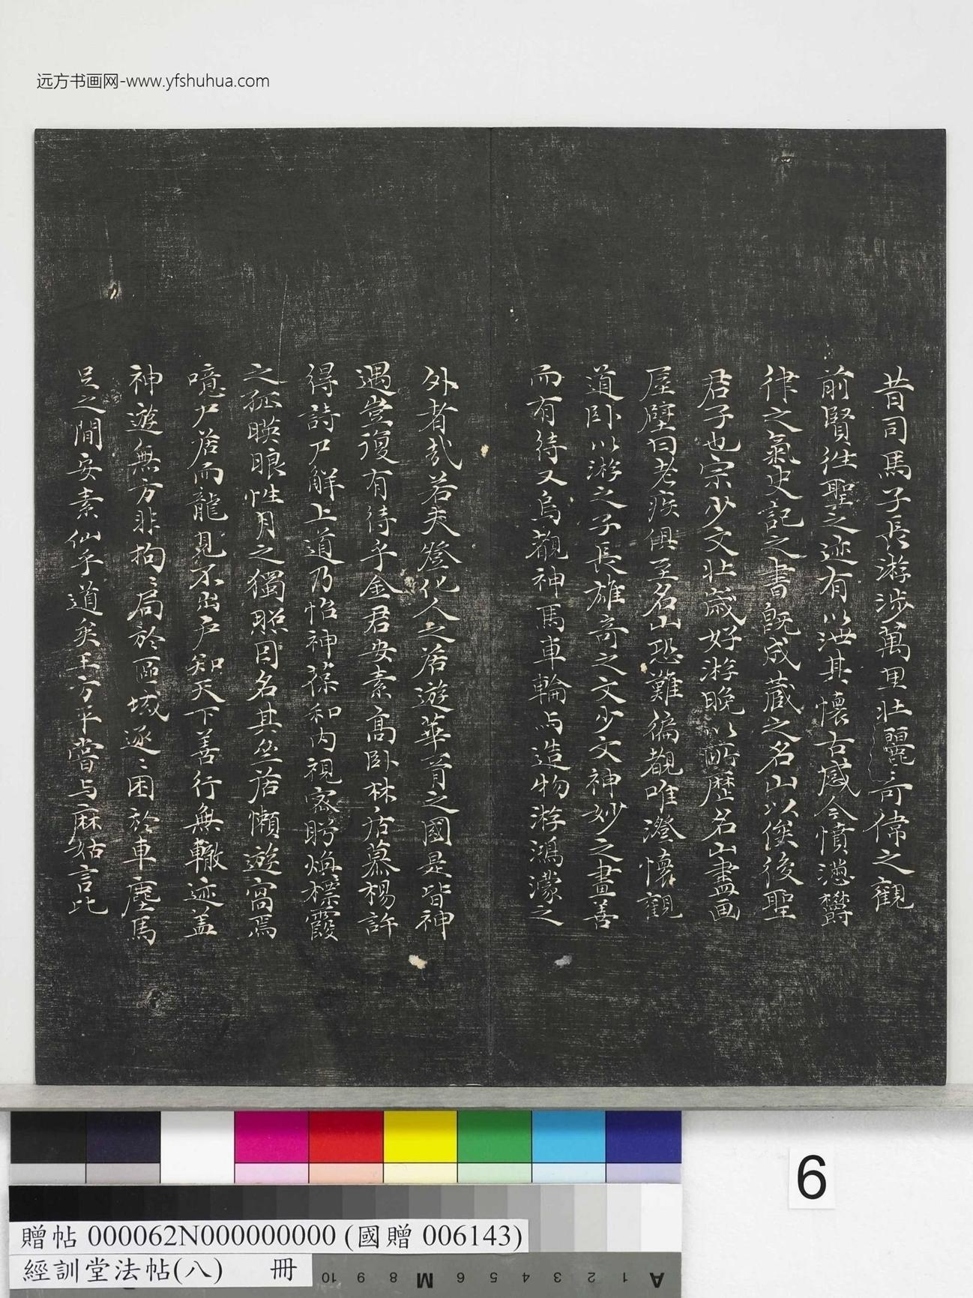 远方书画网-www.yfshuhua.com
昔司馬子長游涉萬里壯麗奇偉之觀
前賢往聖之迹有以洪其懷古感今憤懣鬱
律之氣史記之書既成藏之名山以俟後聖
君子也宗少文壯歲好游晚以所歷名山盡画
屋壁曰老疾俱至名山恐難徧覩唯澄懷觀
道卧以游之子長雄奇之文少文神妙之畫善
而有待又烏覩神馬車輪与造物游鴻濛之
外者哉若夫登化人之居遊華胥之國是皆神
遇豈復有待乎金君安素高卧林居慕楊許
得詩尸解上道乃怡神葆和内視密眄煥檏霞
之孤暎眼性月之獨照因名其坐居懶遊窩焉
噫尸居而龍見不出户知天下善行無轍迹盖
神遊無方非拘〻局於區域逐〻困於車塵馬
足之間安素仙乎道矣王方平嘗与麻姑言比
6
贈帖 000062N000000000 (國贈 006143)
經訓堂法帖(八) 冊
10 9 8 M 6 5 4 3 2 1 A